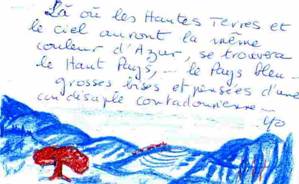 Là où les Hautes Terres et
le ciel auront la même
couleur d'Azur, se trouvera
le Haut Pays, ... le Pays bleu -
grosses bises et pensées d'une
disciple contadourienne -
Yo